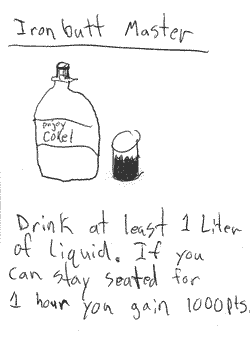 Iron butt Master
enjoy
Coke!
Drink at least 1 Liter
of liquid. If you
can stay seated for
1 hour you gain 1000pts.